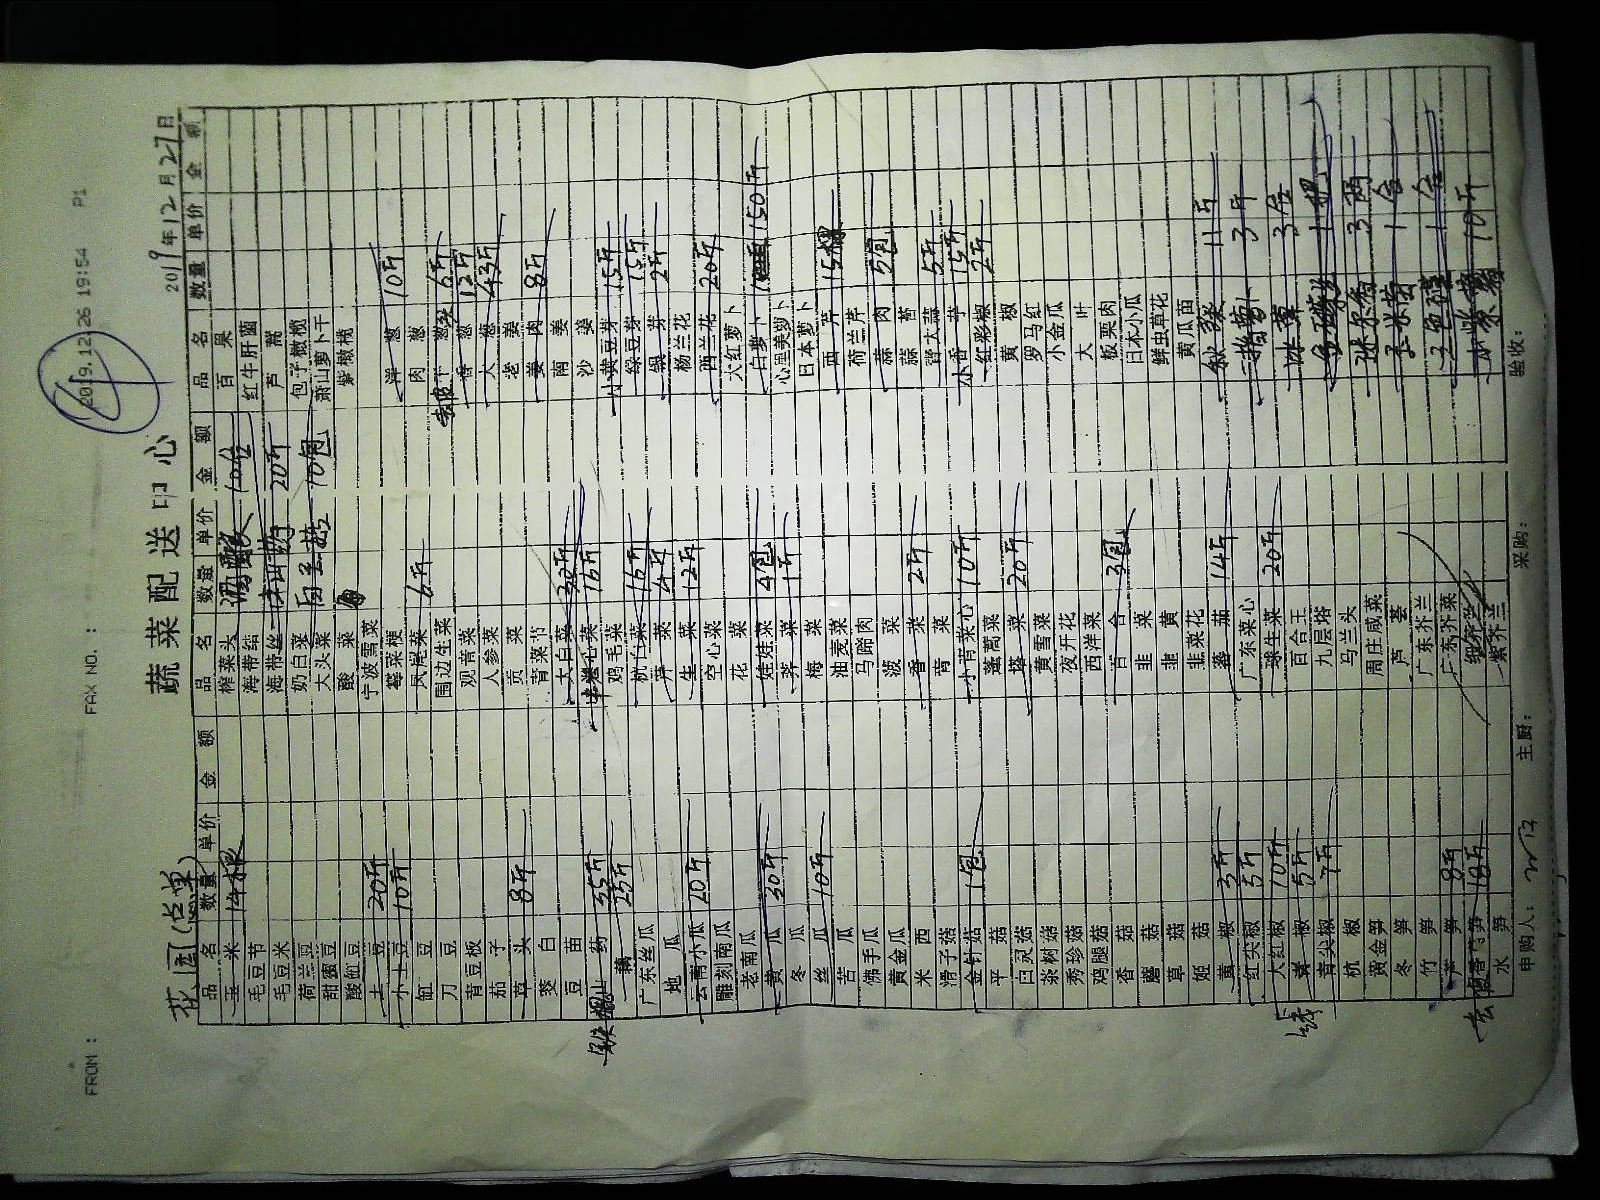 FROM : FAX NO. : 2019.12.26 19:54 P1
蔬菜配送中心
花园(点单) 2019年12月27日
品名 数量 单价 金额 品名 数量 单价 金额 品名 数量 单价 金额
玉米 14根 榨菜头 10包 百果
毛豆节 海带结 红牛肝菌
毛豆米 海带丝 20斤 芦蒿
荷兰豆 奶白菜 白玉菇 10包 包子橄榄
甜蜜豆 大头菜 萧山萝卜干
酸缸豆 酸菜 紫橄榄
土豆 20斤 宁波雪菜
小土豆 10斤 莓菜梗 洋葱 10斤
缸豆 凤尾菜 6斤 肉葱
刀豆 围边生菜 干葱 6斤
青豆板 观音菜 香葱 12斤
茄子 人参菜 大葱 43斤
草头 8斤 贡菜 老姜
茭白 青菜节 姜肉 8斤
豆苗 大白菜 30斤 南姜
山药 35斤 卷心菜 16斤 沙姜
藕 25斤 鸡毛菜 小黄豆芽 15斤
广东丝瓜 杭白菜 16斤 绿豆芽 15斤
地瓜 芹菜 4斤 银芽 2斤
云南小瓜 20斤 生菜 12斤 杨兰花
雕刻南瓜 空心菜 西兰花 20斤
老南瓜 花菜 大红萝卜
黄瓜 30斤 娃娃菜 4包 白萝卜 150斤
冬瓜 荠菜 1斤 心里美萝卜
丝瓜 10斤 梅菜 日本萝卜
苦瓜 油麦菜 西芹 15棵
佛手瓜 马蹄肉 荷兰芹
黄金瓜 菠菜 蒜肉 5包
米西 香菜 2斤 蒜苔
滑子菇 青菜 大蒜 5斤
金针菇 1包 小青菜心 10斤 小香芋 15斤
平菇 蓬蒿菜 红彩椒 2斤
白灵菇 塔菜 20斤 黄椒
茶树菇 黄雪菜 罗马红
秀珍菇 夜开花 小金瓜
鸡腿菇 西洋菜 大叶
香菇 百合 3包 板栗肉
蘑菇 韭菜 日本小瓜
草菇 韭黄 鲜虫草花
姬菇 韭菜花 黄瓜苗
黄椒 3斤 蕃茄 14斤 秋葵 11斤
红尖椒 5斤 广东菜心 3斤
大红椒 10斤 球生菜 20斤 冰草 3盒
青椒 5斤 百合王 1把
青尖椒 7斤 九层塔 3两
杭椒 马兰头 玉米苗 1盒
黄金笋 周庄咸菜 三色堇 1盒
冬笋 芦荟 10斤
竹笋 广东芥兰
芦笋 8斤 广东芥菜
莴笋 18斤 细芥兰
水笋 紫芥兰
申购人: 主厨: 采购: 验收: